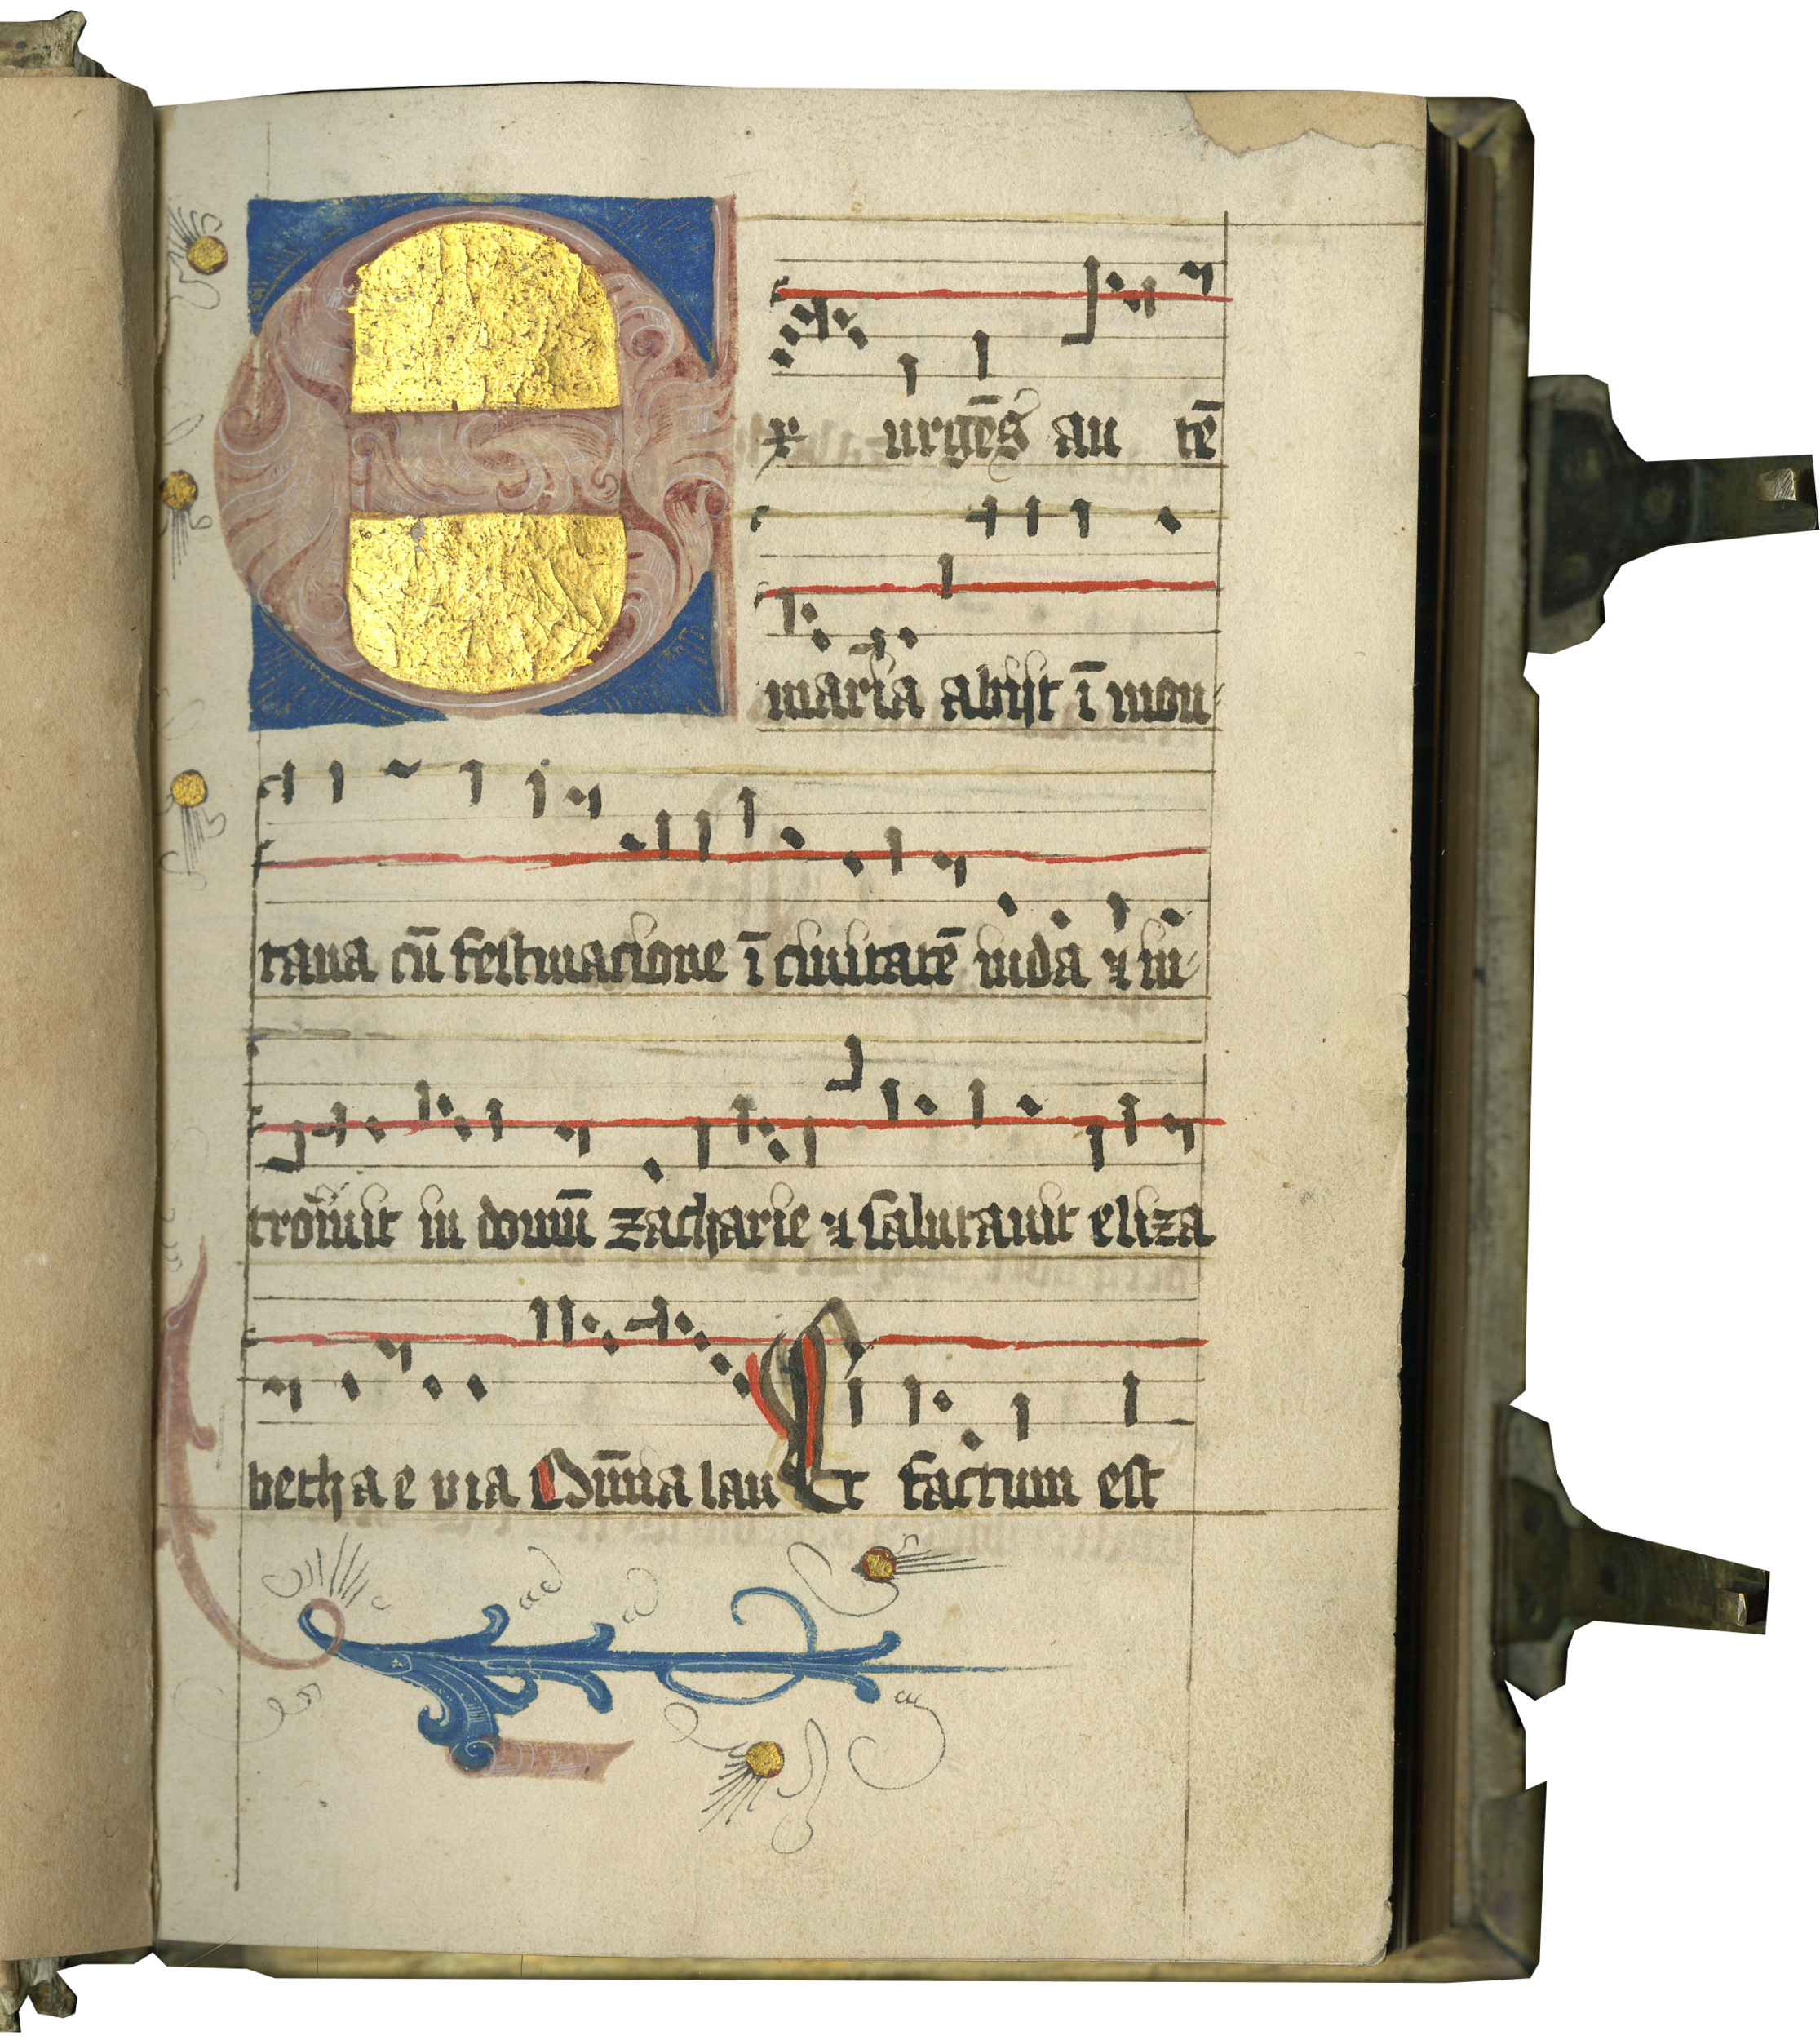 Ex urgēs au tē
maria abijt ī mon-
tana cū festinacione ī ciuitatē iuda ⁊ in-
troiuit in domū zacharie ⁊ salutauit eliza
beth a e v i a Om̄ia lau Et factum est